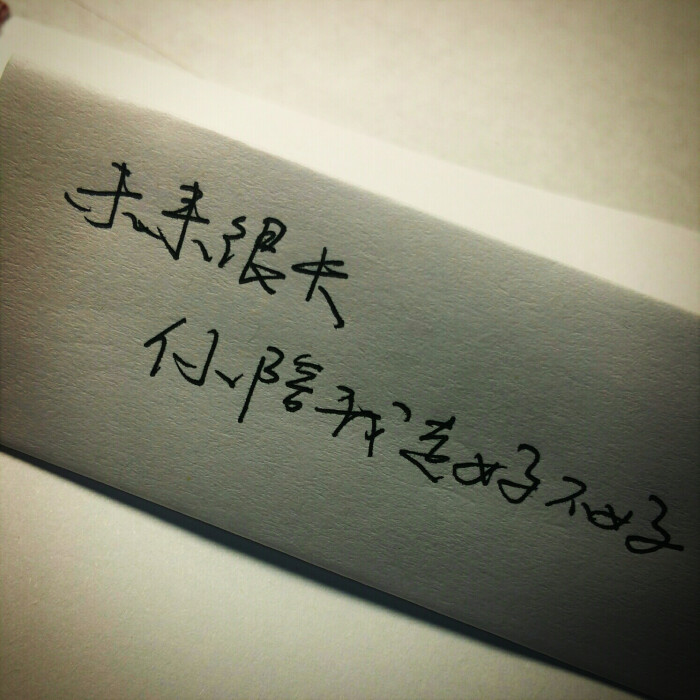 未来很大
你陪我走好不好